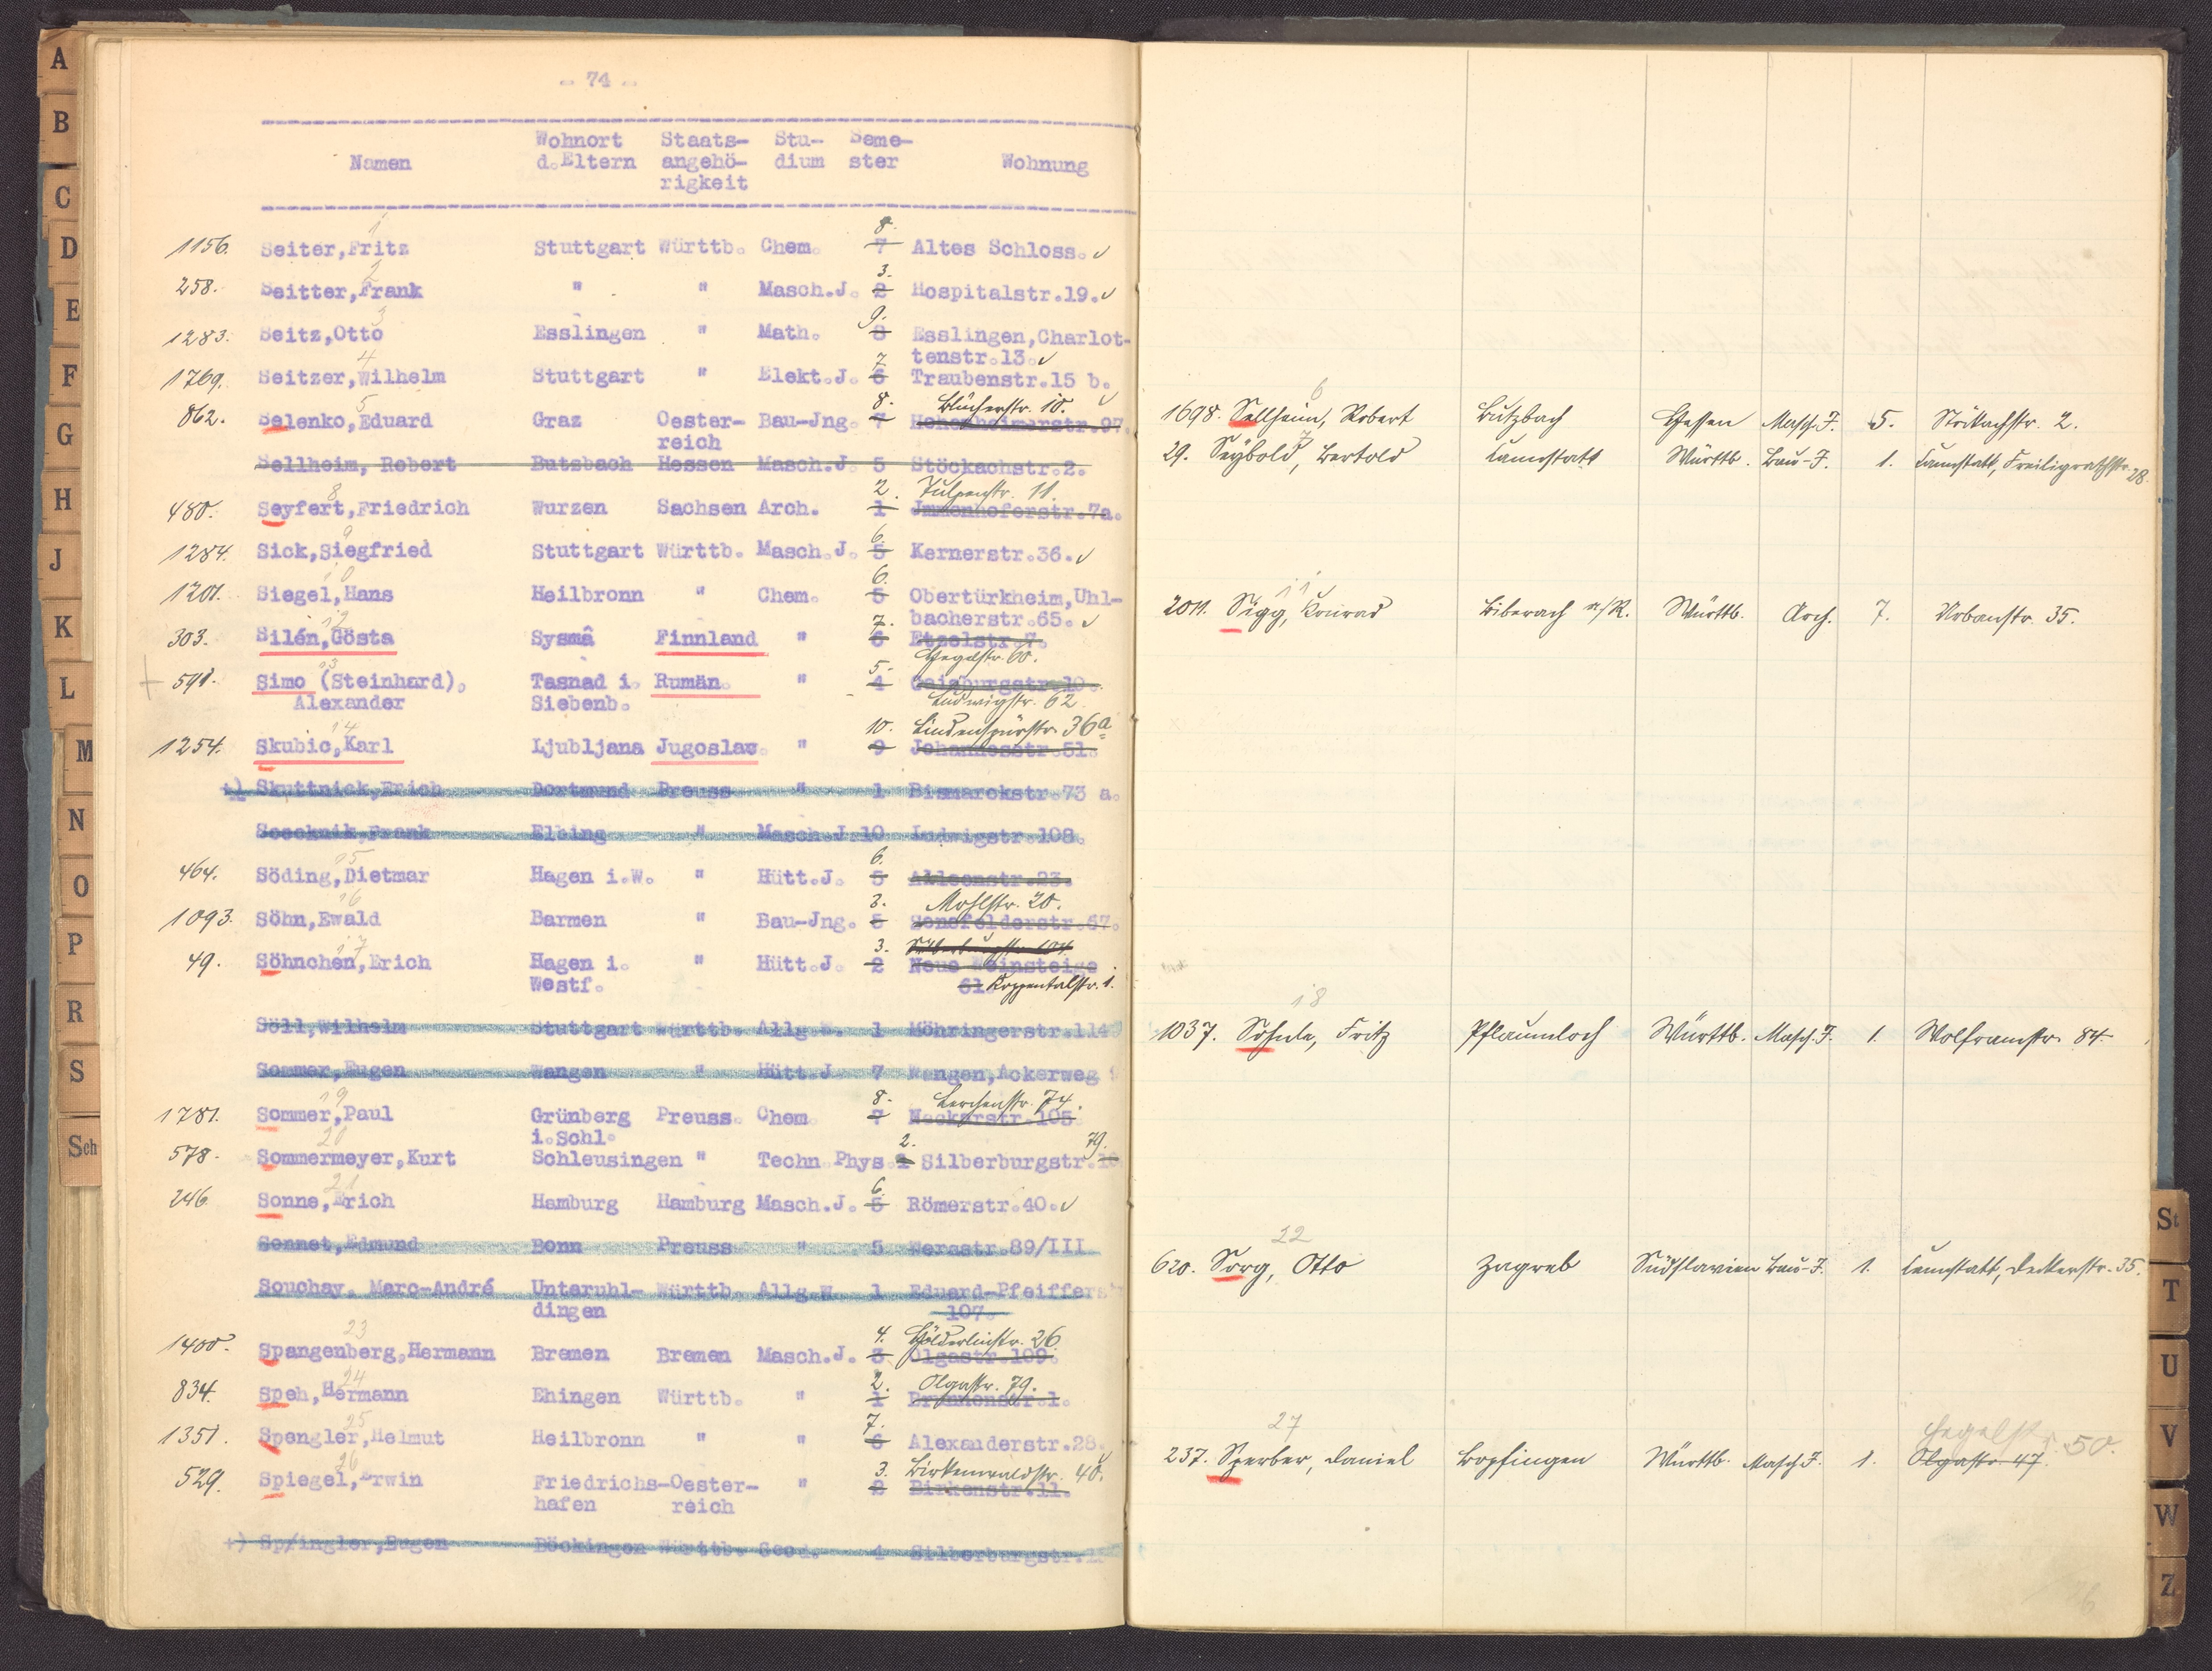 - 74 -
Namen Wohnort d.Eltern Staats-angehö-rigkeit Stu-dium Seme-ster Wohnung
1
8.
1156. Seiter,Fritz Stuttgart Württb. Chem. 7 Altes Schloss. ✓
2
3.
258. Seitter,Frank " " Masch.J. 2 Hospitalstr.19. ✓
3
9.
1283. Seitz,Otto Esslingen " Math. 8 Esslingen,Charlot-
tenstr.13. ✓
4
7
1769. Seitzer,Wilhelm Stuttgart " Elekt.J. 6 Traubenstr.15 b. ✓
5
8. Blücherstr. 10.
862. Selenko,Eduard Graz Oester- Bau-Jng. 7 Hohenheimerstr.97.
reich
Sellheim, Robert Butzbach Hessen Masch.J. 5 Stöckachstr.2.
8
2. Tulpenstr. 11.
480. Seyfert,Friedrich Wurzen Sachsen Arch. 1 Jmmenhoferstr.7a.
9
6.
1284. Sick,Siegfried Stuttgart Württb. Masch.J. 5 Kernerstr.36. ✓
10
6.
1201. Siegel,Hans Heilbronn " Chem. 5 Obertürkheim,Uhl-
bacherstr.65. ✓
12
7.
303. Silén,Gösta Sysmâ Finnland " 6 Etzelstr.7.
Hegelstr. 60.
13
5.
591. Simo (Steinhard), Tasnad i. Rumän. " 4 Gaisburgstr.19.
Alexander Siebenb. Ludwigstr. 62
14
10. Lindenspürstr. 36a
1254. Skubic,Karl Ljubljana Jugoslaw. " 9 Johannesstr.51.
+) Skuttnick,Erich Dortmund Preuss " 1 Bismarckstr.73 a.
Frank Elbing " Masch.J.10 Ludwigstr.108.
15
6.
464. Söding,Dietmar Hagen i.W. " Hütt.J. 5
16
3. Mohlstr. 20.
1093. Söhn,Ewald Barmen " Bau-Jng. Senefelderstr.67.
17
3. Silberburgstr.
49. Söhnchen,Erich Hagen i. " Hütt.J. 2 Neue Weinsteige
Westf. 61. Koppentalstr. 1.
Söll,Wilhelm Stuttgart Württb. Allg.W. 1 Möhringerstr.114
Sommer,Eugen Wangen " Hütt.J. 7 Wangen,Ackerweg
19
8. Lerchenstr. 74.
1781. Sommer,Paul Grünberg Preuss. Chem 7 Neckarstr.105
i.Schl.
20
2. 79.
578. Sommermeyer,Kurt Schleusingen " Techn.Phys. 1 Silberburgstr.
21
6.
246 Sonne,Erich Hamburg Hamburg Masch.J. 5 Römerstr.40. ✓
Sonnet,Edmund Bonn Preuss " 5 Werastr.89/III
Souchay, Marc-André Unteruhl- Württb. Allg.W. 1 Eduard-Pfeifferstr
dingen 107.
23
4. Hölderlinstr. 26
1400. Spangenberg,Hermann Bremen Bremen Masch.J. 3 Olgastr.109.
24
2. Olgastr. 79.
834. Speh,Hermann Ehingen Württb. " 1 Brunnenstr.1.
25
7.
1351. Spengler,Helmut Heilbronn " " 6 Alexanderstr.28.
26
3. Birkenwaldstr. 40.
529. Spiegel,Erwin Friedrichs- Oester- " 2 Birkenstr.11.
hafen reich
+) Sp/ingler,Eugen Böckingen Württb. Geod. 4 Silberburgstr.
6
1698. Sellheim, Robert Butzbach Hessen Masch.J. 5. Stöckachstr. 2.
7
29. Seybold, Bertold Cannstatt Württb. Bau-J. 1. Cannstatt, Freiligrathstr. 28.
11
2011. Sigg, Konrad Biberach a/R. Württb. Arch. 7. Urbanstr. 35.
18
1037. Söhnle, Fritz Pflaumloch Württb. Masch.J. 1. Wolframstr. 84
22
620. Sorg, Otto Zagreb Südslavien Bau-J. 1. Cannstatt, Deckerstr. 35.
27
Hegelstr. 50.
237. Sperber, Daniel Bopfingen Württb. Masch.J. 1. Olgastr. 47.
A
B
C
D
E
F
G
H
J
K
L
M
N
O
P
R
S
Sch
St
T
U
V
W
Z